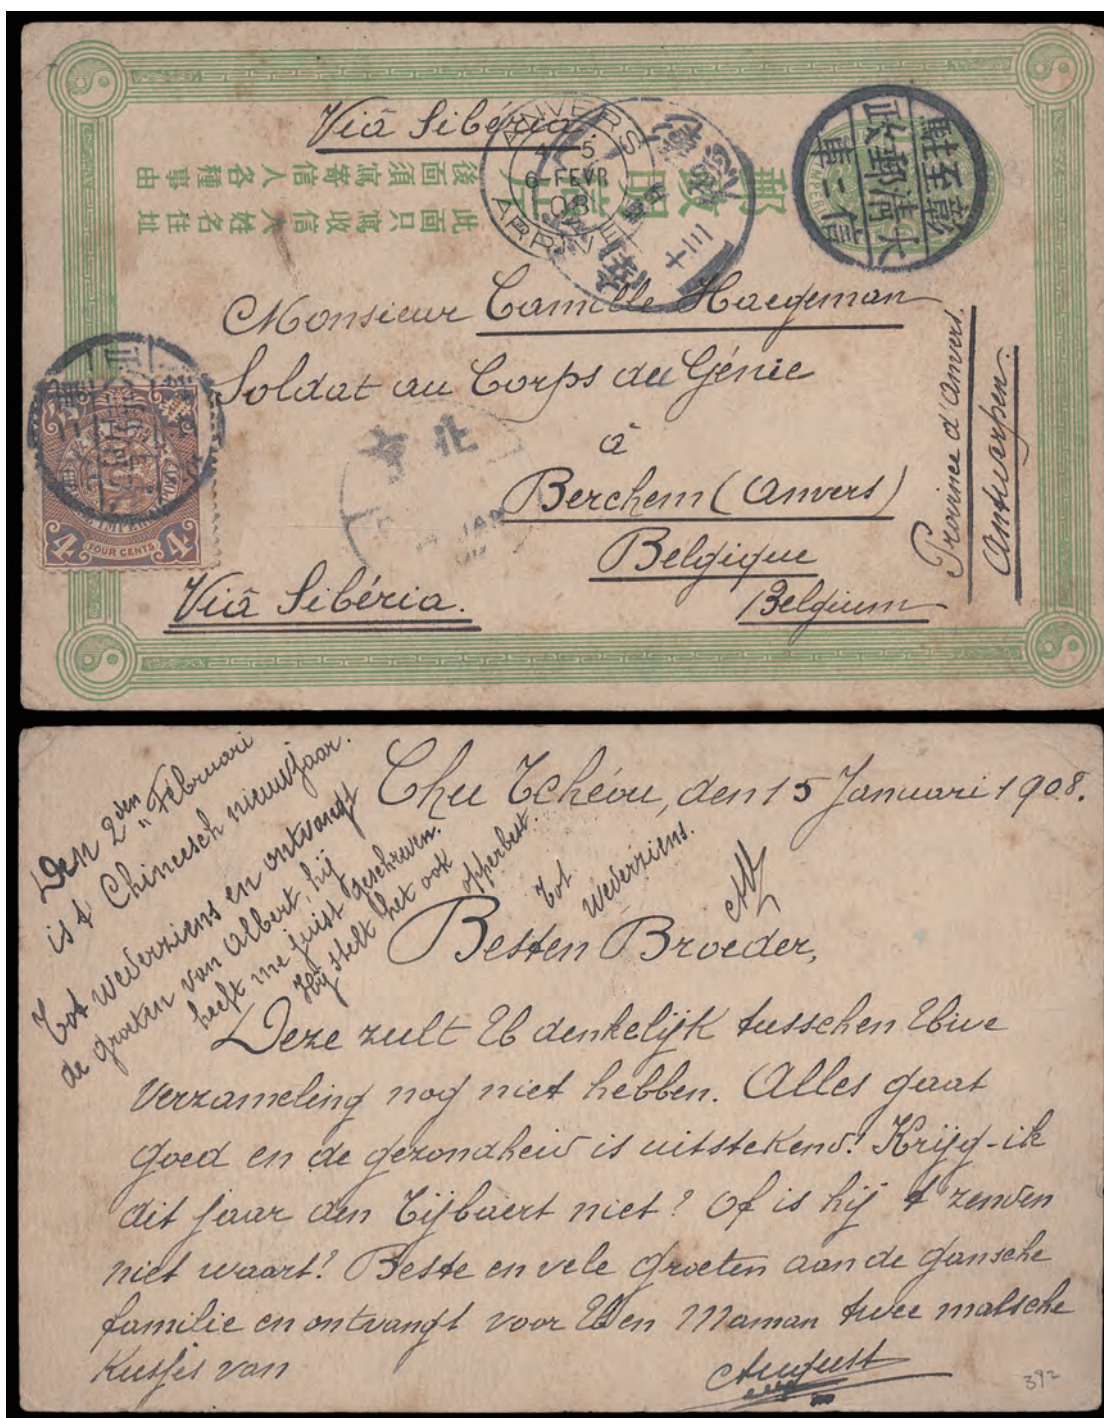 Viâ Sibéria.
ANVERS
4 - 5
6 FEVR
08
ARRIVÉE
Monsieur Camille Haegeman
Soldat au Corps du Génie
à
Berchem (Anvers)
Belgique
Belgium
Province d'Anvers.
Antwerpen.
Viâ Sibéria.
後面須寫寄信人各種事由
此面只寫收信人姓名住址
4 FOUR CENTS 4
北京
JAN
Chu Tchéou, den 15 Januari 1908.
Den 2den Februari
is 't Chineesch nieuwjaar.
Tot wederziens en ontvangt
de groeten van Albert, hij
heeft me juist geschreven.
Hij stelt het ook opperbest.
Tot
wederziens.
Besten Broeder,
Deze zult U denkelijk tusschen Uwe
verzameling nog niet hebben. Alles gaat
goed en de gezondheid is uitstekend! Krijg-ik
dit jaar den Tijbaert niet? Of is hij 't zenden
niet waart! Beste en vele groeten aan de gansche
familie en ontvangt voor U en Maman twee malsche
kusjes van
August
392